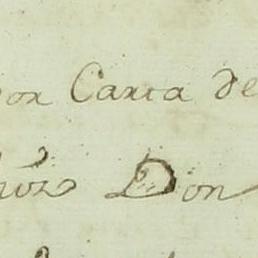 por Carta de
Don